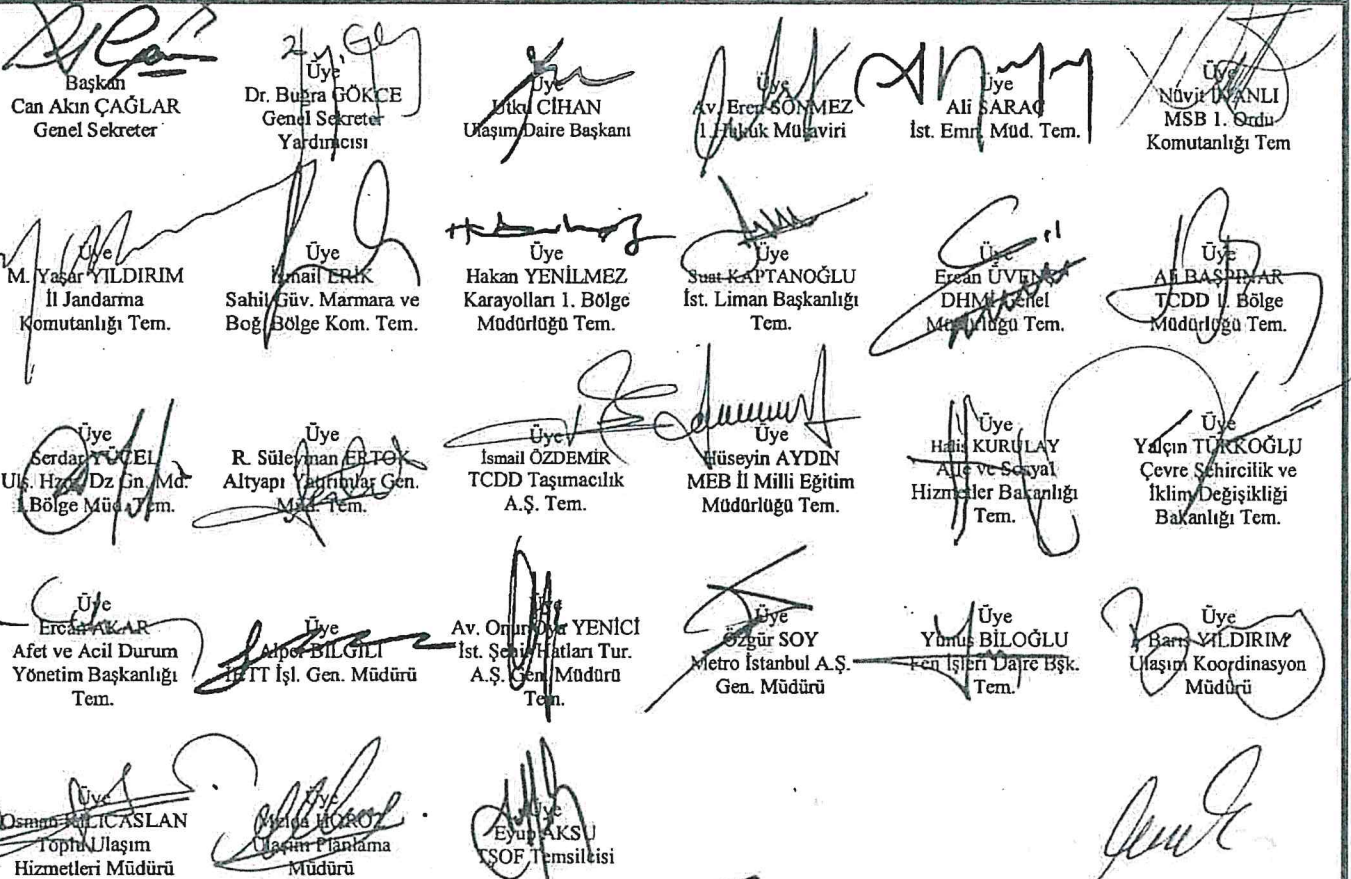 Başkan
Can Akın ÇAĞLAR
Genel Sekreter
Üye
Dr. Buğra GÖKCE
Genel Sekreter
Yardımcısı
Üye
Utku CİHAN
Ulaşım Daire Başkanı
Üye
Av. Eren SÖNMEZ
1. Hukuk Müşaviri
Üye
Ali SARAÇ
İst. Emn. Müd. Tem.
Üye
Nüvit İNANLI
MSB 1. Ordu
Komutanlığı Tem
Üye
M. Yaşar YILDIRIM
İl Jandarma
Komutanlığı Tem.
Üye
İsmail ERİK
Sahil Güv. Marmara ve
Boğ. Bölge Kom. Tem.
Üye
Hakan YENİLMEZ
Karayolları 1. Bölge
Müdürlüğü Tem.
Üye
Suat KAPTANOĞLU
İst. Liman Başkanlığı
Tem.
Üye
Ercan
DHMİ Genel
Müdürlüğü Tem.
Üye
Ali BAŞPINAR
TCDD 1. Bölge
Müdürlüğü Tem.
Üye
Serdar YÜCEL
Ulş. Hzm. Dz Gn. Md.
1.Bölge Müd. Tem.
Üye
R. Süleyman ERTOK
Altyapı Yatırımlar Gen.
Müd. Tem.
Üye
İsmail ÖZDEMİR
TCDD Taşımacılık
A.Ş. Tem.
Üye
Hüseyin AYDIN
MEB İl Milli Eğitim
Müdürlüğü Tem.
Üye
Halis KURULAY
Aile ve Sosyal
Hizmetler Bakanlığı
Tem.
Üye
Yalçın TÜRKOĞLU
Çevre Şehircilik ve
İklim Değişikliği
Bakanlığı Tem.
Üye
Ercan AKAR
Afet ve Acil Durum
Yönetim Başkanlığı
Tem.
Üye
Alper BİLGİLİ
İETT İşl. Gen. Müdürü
Üye
Av. Onur YENİCİ
İst. Şehir Hatları Tur.
A.Ş. Gen. Müdürü
Tem.
Üye
Özgür SOY
Metro İstanbul A.Ş.
Gen. Müdürü
Üye
Yunus BİLOĞLU
Fen İşleri Daire Bşk.
Tem.
Üye
Barış YILDIRIM
Ulaşım Koordinasyon
Müdürü
Üye
Osman KILIÇASLAN
Toplu Ulaşım
Hizmetleri Müdürü
Üye
HOROZ
Ulaşım Planlama
Müdürü
Üye
Eyup AKSU
TŞOF Temsilcisi